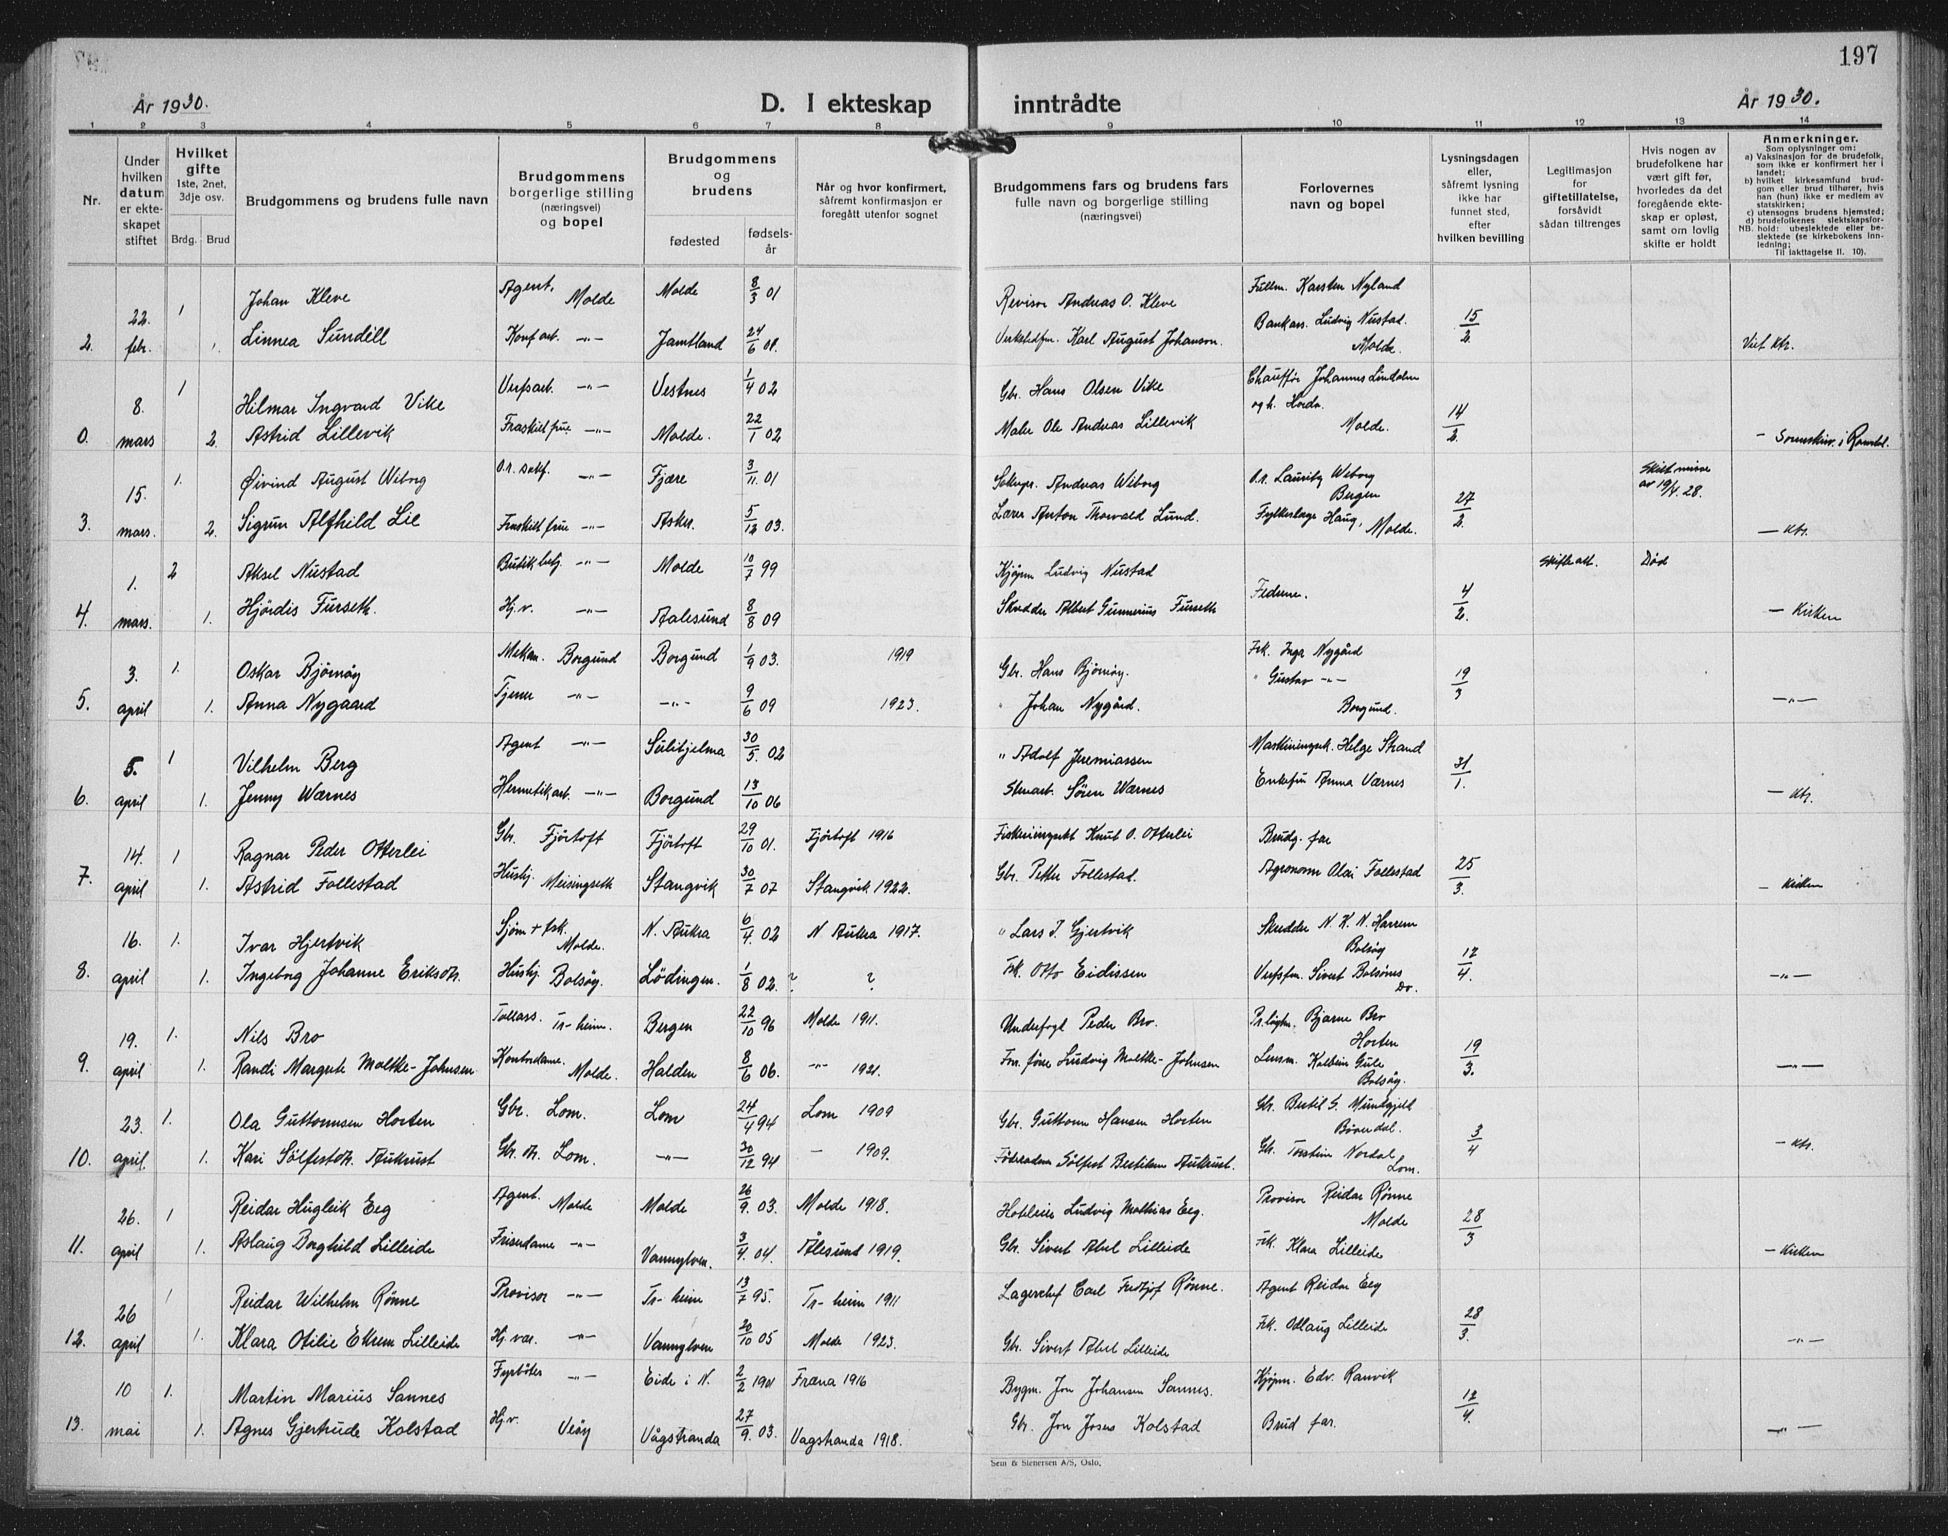 197
År 1930.
D. I ekteskap inntrådte
År 1930.
1 2 3 4 5 6 7 8 9 10 11 12 13 14
Nr.
Under hvilken datum er ekteskapet stiftet
Hvilket gifte
1ste, 2net, 3dje osv.
Brdg. Brud
Brudgommens og brudens fulle navn
Brudgommens borgerlige stilling (næringsvei) og bopel
Brudgommens og brudens
fødested
fødselsår
Når og hvor konfirmert, såfremt konfirmasjon er foregått utenfor sognet
Brudgommens fars og brudens fars fulle navn og borgerlige stilling (næringsvei)
Forlovernes navn og bopel
Lysningsdagen eller, såfremt lysning ikke har funnet sted, efter hvilken bevilling
Legitimasjon for giftetillatelse, forsåvidt sådan tiltrenges
Hvis nogen av brudefolkene har vært gift før, hvorledes da det foregående ekteskap er opløst, samt om lovlig skifte er holdt
Anmerkninger.
Som oplysninger om:
a) Vaksinasjon for de brudefolk, som ikke er konfirmert her i landet;
b) hvilket kirkesamfund brudgom eller brud tilhører, hvis han (hun) ikke er medlem av statskirken;
c) utensogns brudens hjemsted;
d) brudefolkenes slektskapsforhold: ubeslektede eller beslektede (se kirkebokens innledning;
NB.
Til iakttagelse II. 10).
22. 1 Johan Kleve Agent. Molde Molde 8/3 01 Revisor Andreas O. Kleve Fullm. Karsten Nyland
2. febr. 1. Linnea Sundell Konf.arb. -"- Jamtland 24/6 Karl August Johanson. Bankass. Ludvig Nustad. Molde. 15/2 Viet Ktr.
8. 1 Hilmar Ingvard Vike -"- Vestnes 1/4 02 Gbr. Hans Olsen Vike Chauffør Johannes Lindalen
0. mars 2. Astrid Lillevik Fraskilt frue -"- Molde. 22/1 02 Maler Ole Andreas Lillevik Molde. 14/2 - Sorenskriv. i Romsdal.
15. 1. Øivind August Wiborg O.r. sakf. -"- Fjære 3/11 01 Andreas Wiborg O.r. Lauritz Wiborg Bergen av 19/4. 28.
3. mars. 2. Sigrun Alfhild Lie Fraskilt frue -"- Asker. 5/12 03. Lærer Anton Thorvald Lund. Fylkeslege Haug, Molde. 27/2. - Ktr.
1. 2 Aksel Nustad Butikkbetj. -"- Molde 10/7 99 Kjøpm Ludvig Nustad Skifteatt. Død
4. mars. 1. Hjördis Furseth. Hj.v. -"- Aalesund 8/8 09 Skredder Albert Gunnerius Furseth Fedrene. 4/2. - Kirken
3. 1. Oskar Bjørnøy Mekan. Borgund Borgund 1/9 03. 1919 Gbr. Hans Bjørnøy. Frk. Inga Nygård
5. april 1. Anna Nygaard Tjener -"- -"- 9/6 09 1923. " Johan Nygård. " Gustav -"- Borgund. 19/3 -"-
5. 1 Vilhelm Berg Agent -"- Sulitjelma 30/5. 02 " Adolf Jeremiassen Helge Strand
6. april 1. Jenny Wærnes Hermetikarb. -"- Borgund 13/10 06 Søren Wærnes Enkefru Anna Værnes 31/1. - Ktr.
14. 1 Ragnar Peder Otterlei Gbr. Fjörtoft Fjörtoft 29/10 01. Fjörtoft 1916 Knut O. Otterlei Brudg. far
7. april 1. Astrid Follestad Hushj. Meisingseth Stangvik 30/7 07 Stangvik 1922. Gbr. Petter Follestad. Agronom Olai Follestad 25/3. - Kirken
16. 1. Ivar Hjertvik Sjøm + fisk. Molde. N. Aukra 6/4 02 N. Aukra 1917. " Lars J. Gjertvik Skredder N. K. N. Harrem Bolsøy
8. april 1. Ingeborg Johanne Eriksdtr. Hushj. Bolsøy. Lödingen. 1/8 02. ? ? Otto Eidissen Verftsfm. Sivert Bolsønes Do. 12/4. -"-
19. 1. Nils Bro Tollass. Tr-heim. Bergen 22/10 96 Molde 1911. Underfogt Peder Bro. Bjarne Bro Horten
9. april 1. Randi Margrete Moltke-Johnsen Kontordame. Molde. Halden 8/6 06. -"- 1921. Ludvig Moltke-Johnsen Lensm. Kolbein Gule Bolsøy. 19/3. -"-
23. 1. Ola Guttormsen Horten Gbr. Lom. Lom 24/4 94 Lom 1909 Gbr. Guttorm Hansen Horten Gbr. Bertil G. Mundgjeld Bøverdal.
10. april. 1. Kari Sölfestdtr. Aukrust Gbr. dtr. Lom. -"- 30/12 94 - 1909. Føderådsm. Sölfest Bertilsen Aukrust. Gbr. Torstein Nordal Lom. 3/4 - Ktr.
26. 1 Reidar Hugleik Eeg Agent. Molde Molde 26/9. 03. Molde 1918. Ludvig Mathias Eeg. Provisor Reidar Rønne Molde
11. april 1. Aslaug Borghild Lilleide Friserdame -"- Vannylven. 3/4. 04. Ålesund 1919. Gbr. Sivert Abel Lilleide Frk. Klara Lilleide 28/3 - Kirken
26 1 Reidar Wilhelm Rønne Provisor -"- Tr-heim 13/7 95. Tr-heim 1911 Lagerchef Carl Fredtjof Rønne. Agent Reidar Eeg
12. april 1. Klara Otilie Ekrem Lilleide Hj. vær. -"- Vannylven 20/10 05 Molde 1923. Gbr. Sivert Abel Lilleide Frk. Odlaug Lilleide 28/3. -"-
10 1. Martin Marius Sannes Fyrbøter -"- Eide i N. 2/2 1901 Fræna 1916 Bygm. Jon Johansen Sannes. Kjøpm. Edv. Ranvik
13. mai 1. Agnes Gjertrude Kolstad Hj.v. Veøy Vågstranda 27/9. 03. Vagstranda 1918. Gbr. Jon Kolstad Brud far. 12/4. -"-
Sem & Stenersen A/S, Oslo.